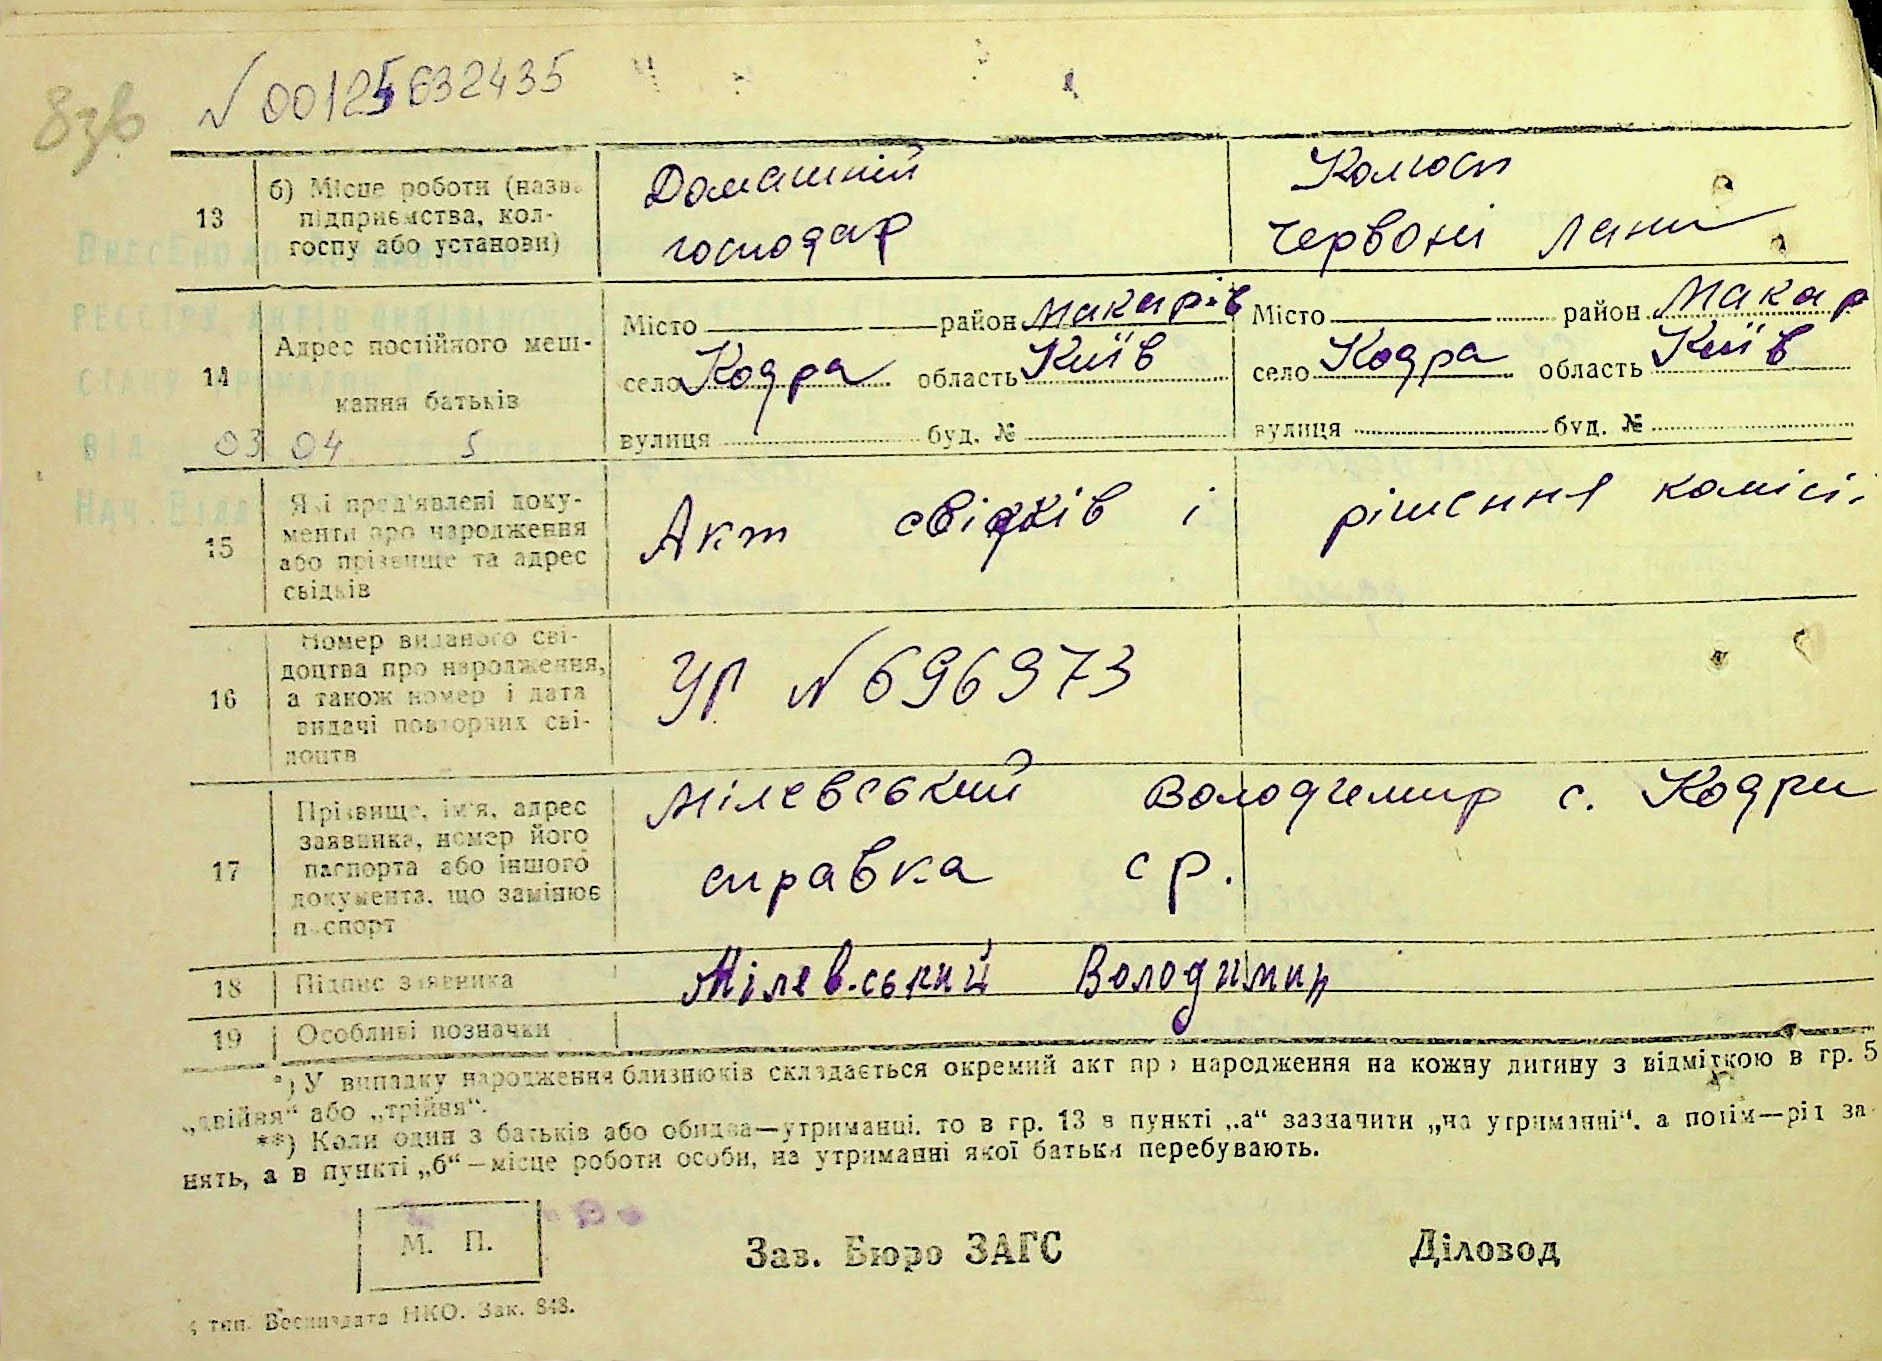 8зв
№ 00125632435
13
б) Місце роботи (назва
підприємства, кол-
госпу або установи)
Домашній
господар
Колгосп
Червоні Лани
14
Адрес постійного меш-
кання батьків
Місто район Макарів
село Кодра область Київ
вулиця буд. №
Місто район Макар
село Кодра область Київ
вулиця буд. №
Внесено до
реєстру актів
стану громадян
від 03 04 5
Нач. Відд
15
Які пред'явлені доку-
менти про народження
або прізвище та адрес
свідків
Акт свідків і рішення комісії
16
Номер виданого сві-
доцтва про народження,
а також номер і дата
видачі повторних сві-
доцтв
УР № 696973
17
Прізвище, ім'я, адрес
заявника, номер його
паспорта або іншого
документа, що замінює
паспорт
Мілевський Володимир с. Кодри
справка ср.
18
Підпис заявника
Мілевський Володимир
19
Особливі позначки
*) У випадку народження близнюків складається окремий акт про народження на кожну дитину з відміткою в гр. 5
„двійня“ або „трійня“.
**) Коли один з батьків або обидва—утриманці, то в гр. 13 в пункті „а“ зазначити „на утриманні“, а потім—рід за-
нять, а в пункті „б“—місце роботи особи, на утриманні якої батьки перебувають.
М. П.
Зав. Бюро ЗАГС
Діловод
тип. Воениздата НКО. Зак. 848.